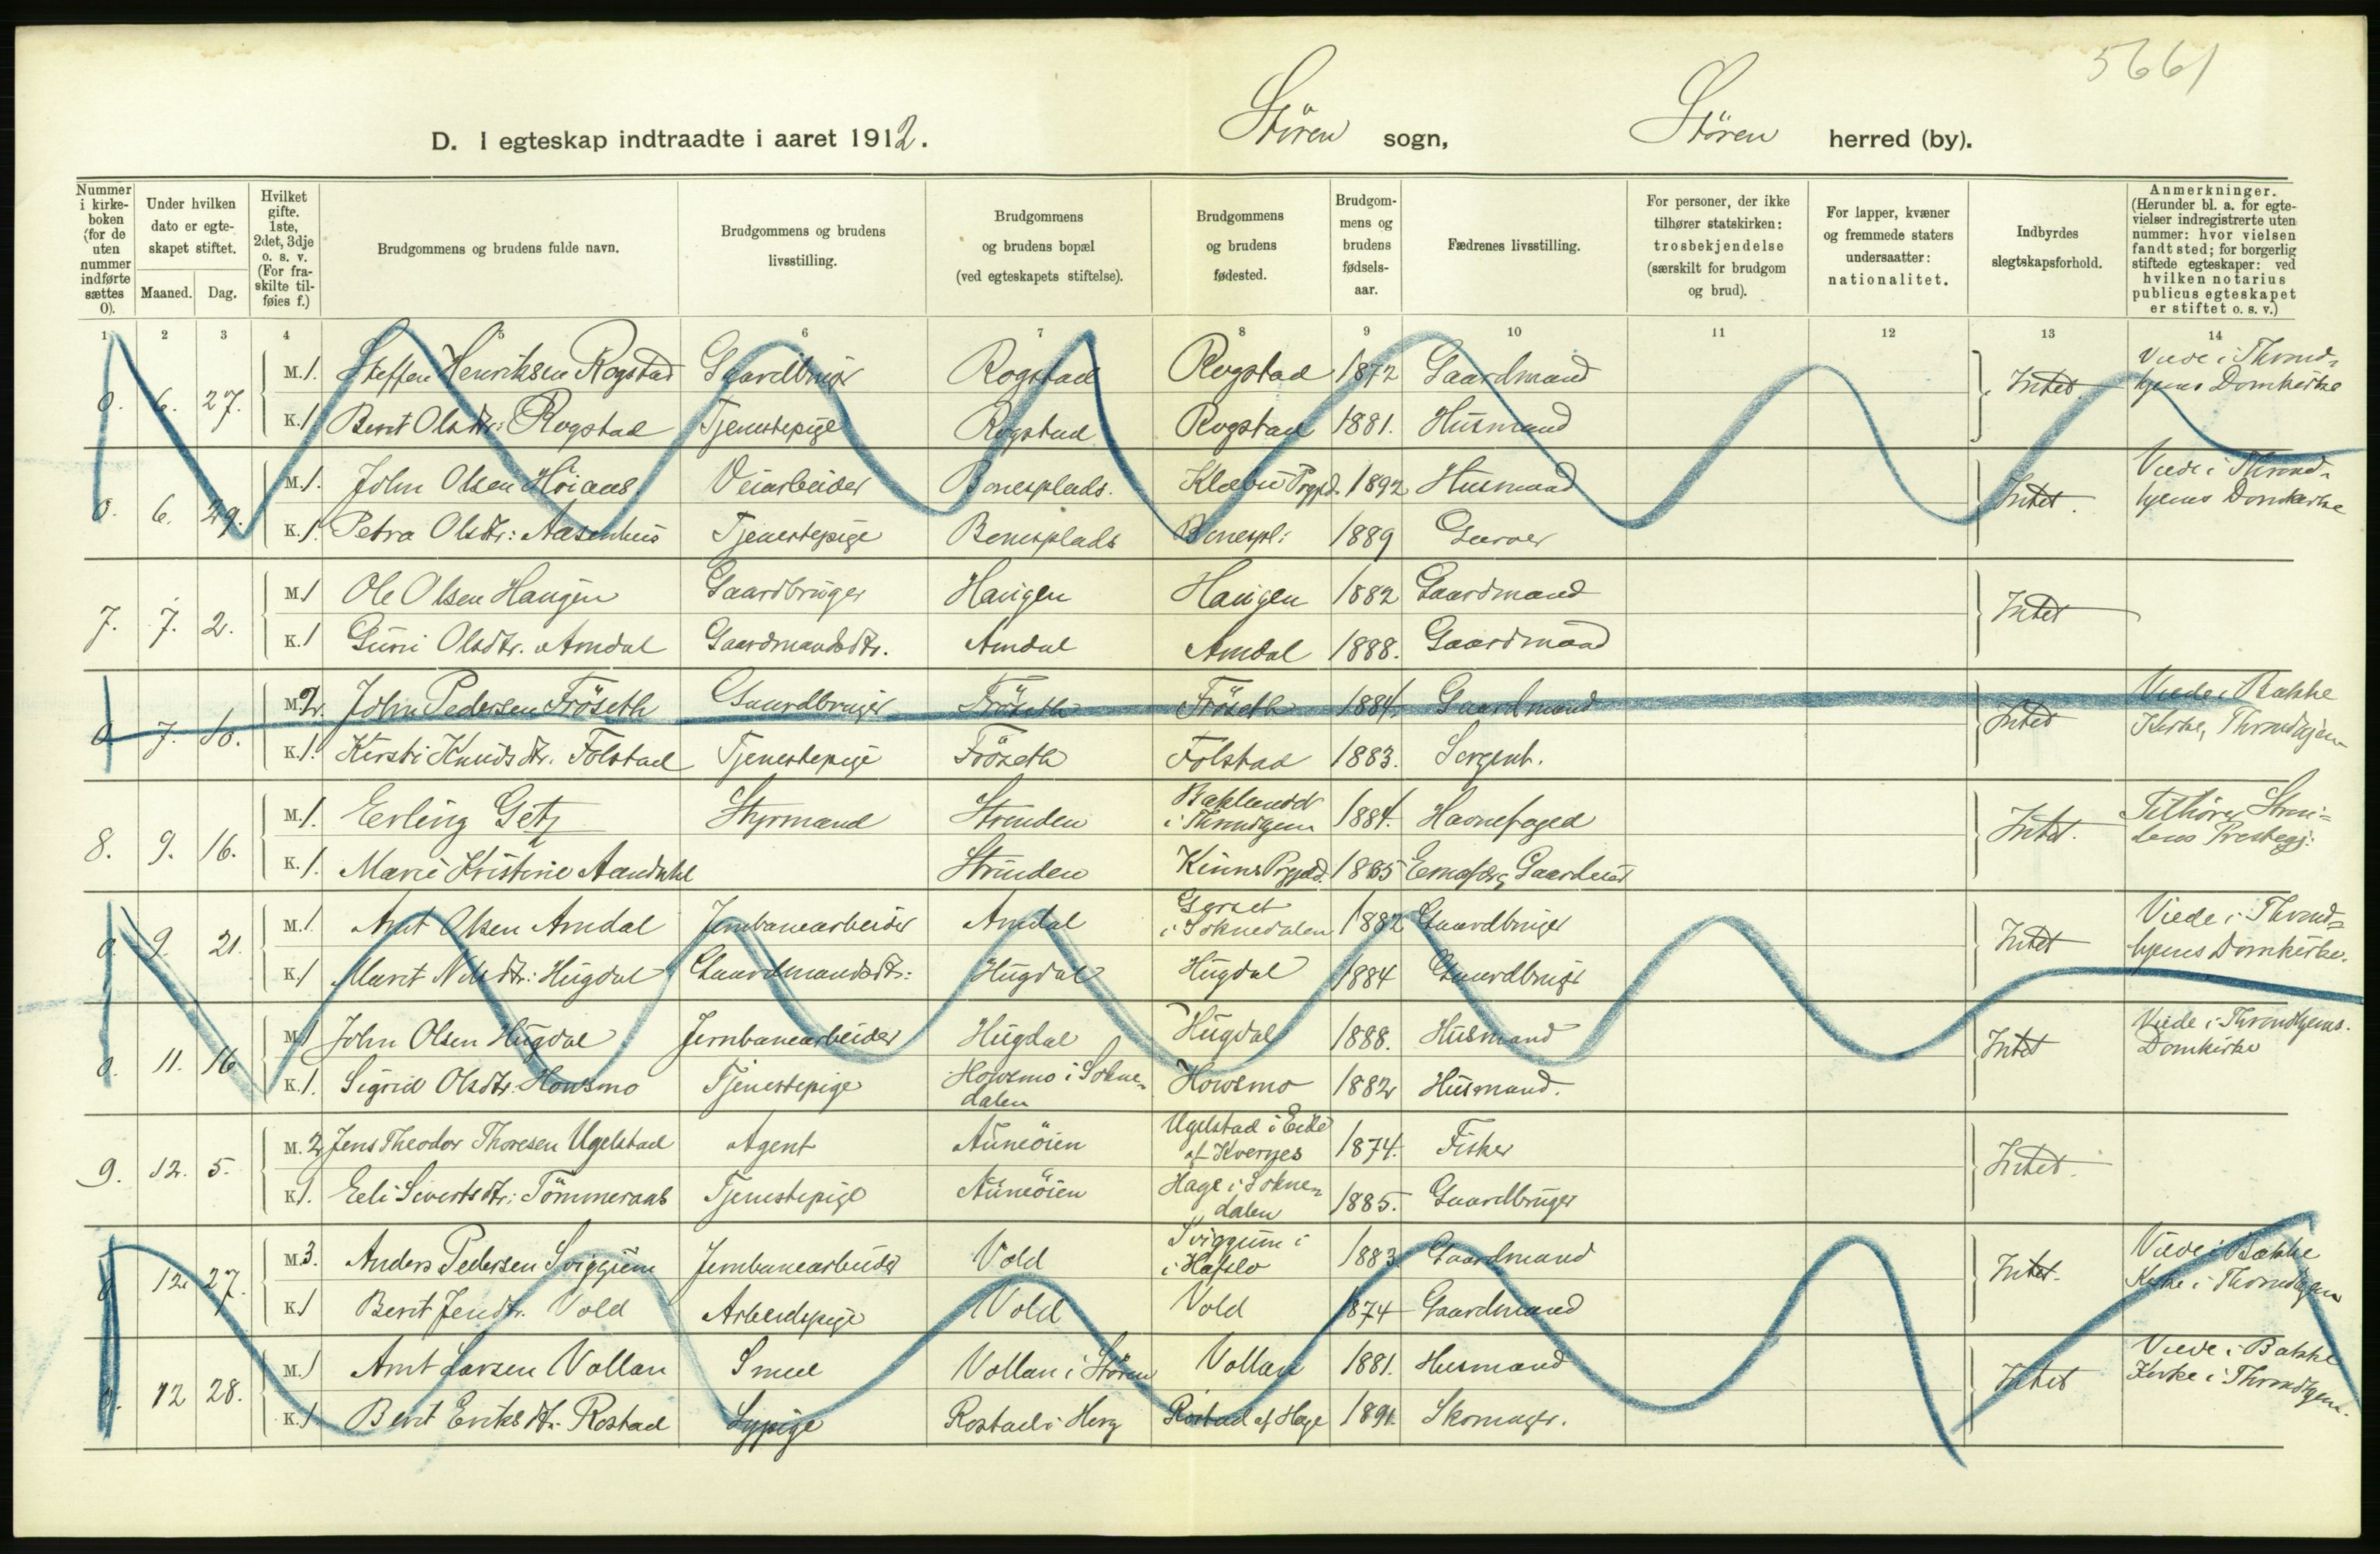 5661
D. I egteskap indtraadte i aaret 1912. Stören sogn, Stören herred (by).
Nummer i kirke-boken (for de uten nummer indførte sættes 0). Under hvilken dato er egte-skapet stiftet. Maaned. Dag. Hvilket gifte. 1ste, 2det, 3dje o. s. v. (For fra-skilte til-føies f.) Brudgommens og brudens fulde navn. Brudgommens og brudens livsstilling. Brudgommens og brudens bopæl (ved egteskapets stiftelse). Brudgommens og brudens fødested. Brudgom-mens og brudens fødsels-aar. Fædrenes livsstilling. For personer, der ikke tilhører statskirken: trosbekjendelse (særskilt for brudgom og brud). For lapper, kvæner og fremmede staters undersaatter: nationalitet. Indbyrdes slegtskapsforhold. Anmerkninger. (Herunder bl. a. for egte-vielser indregistrerte uten nummer: hvor vielsen fandt sted; for borgerlig stiftede egteskaper: ved hvilken notarius publicus egteskapet er stiftet o. s. v.)
1 2 3 4 5 6 7 8 9 10 11 12 13 14
0. 6. 27. M. 1. Steffen Henriksen Rogstad Gaardbruger Rogstad Rogstad 1872 Gaardmand Intet. Viede i Thrond-hjems Domkirke
K. 1 Berit Olsdtr: Rogstad Tjenestepige Rogstad Rogstad 1881. Husmand
0. 6. 29. M. 1. John Olsen Höiaas Veiarbeider Bonesplads. Klæbu Prgjd. 1892 Husmand Intet. Viede i Thrond-hjems Domkirke
K. 1. Petra Olsdtr: Aasenhus Tjenestepige Bonesplads Bonespl: 1889 Garver
7. 7. 2. M. 1 Ole Olsen Haugen Gaardbruger Haugen Haugen 1882 Gaardmand Intet
K. 1 Guri Olsdtr. Amdal Gaardmandsdtr. Amdal Amdal 1888. Gaardmand
0 7. 10. M. 2. John Pedersen Fröseth Gaardbruger Fröseth Fröseth 1884. Gaardmand Intet Viede i Bakke Kirke, Throndhjem
K. 1. Kirsti Knudsdtr. Folstad Tjenestepige Fröseth Folstad 1883. Sergent.
8. 9. 16. M. 1. Erling Getz Styrmand Strinden Baklandet i Throndhjem 1884. Havnefoged Intet. Tilhører Strin-dens Prestegj:
K. 1. Marie Kristine Aandahl Strinden Kinns Prgjd. 1885 Gaardeier
0. 9. 21. M. 1 Arnt Olsen Amdal Jernbanearbeider Amdal i Soknedalen 1882 Gaardbruger Intet Viede i Thrond-hjems Domkirke.
K. 1 Marit Nilsdtr: Hugdal Gaardmandsdtr: Hugdal Hugdal 1884 Gaardbruger
0. 11. 16 M. 1 John Olsen Hugdal Jernbanearbeider Hugdal Hugdal 1888. Husmand Intet Viede i Throndhjems. Domkirke
K. 1. Sigrid Olsdtr. Howsmo Tjenestepige Howsmo i Sokne-dalen Howsmo 1882 Husmand.
9. 12. 5. M. 2. Jens Theodor Thoresen Ugelstad Agent Aunöien Ugelstad i Eide af Kvernes 1874. Fisker Intet.
K. 1. Eli Sivertsdtr: Tömmeraas Tjenestepige Aunöien Hage i Sokne-dalen 1885. Gaardbruger
0 12 27. M. 3. Anders Pedersen Sviggum Jernbanearbeider Vold Sviggum i Hafslo 1883 Gaardmand Intet. Viede i Bakke Kirke i Throndhjem
K. 1 Berit Jensdtr. Vold Arbeidspige Vold Vold 1874 Gaardmand
0. 12 28. M. 1 Arnt Larsen Vollan Smed Vollan i Stören Vollan 1881. Husmand Intet Viede i Bakke Kirke i Throndhjem.
K. 1 Berit Eriksdtr. Rostad Sypige Rostad i Horg Rostad af Hage 1891. Skomager.